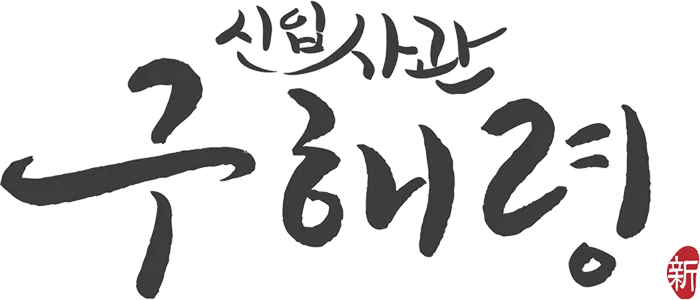 신입사관
구해령
新